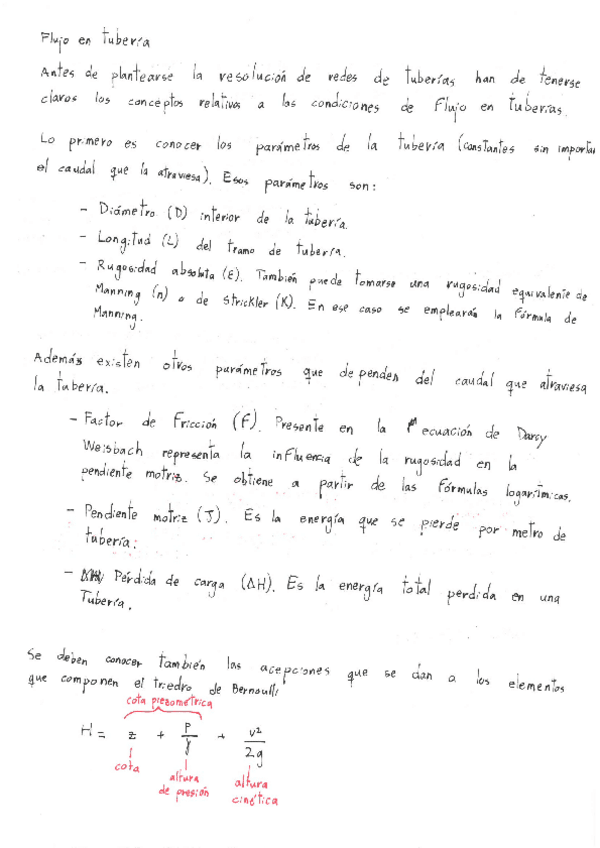 Flujo en tubería
Antes de plantearse la resolución de redes de tuberías han de tenerse
claros los conceptos relativos a las condiciones de flujo en tuberías.
Lo primero es conocer los parámetros de la tubería (constantes sin importar
el caudal que la atraviesa). Esos parámetros son:
- Diámetro (D) interior de la tubería.
- Longitud (L) del tramo de tubería.
- Rugosidad absoluta (ε). También puede tomarse una rugosidad equivalente de
Manning (n) o de Strickler (K). En ese caso se empleará la fórmula de
Manning.
Además existen otros parámetros que dependen del caudal que atraviesa
la tubería.
- Factor de Fricción (f). Presente en la ecuación de Darcy
Weisbach representa la influencia de la rugosidad en la
pendiente motriz. Se obtiene a partir de las fórmulas logarítmicas.
- Pendiente motriz (J). Es la energía que se pierde por metro de
tubería.
- Pérdida de carga (ΔH). Es la energía total perdida en una
Tubería.
Se deben conocer también las acepciones que se dan a los elementos
que componen el triedro de Bernoulli
cota piezométrica
H = z + P/γ + v²/2g
cota altura de presión altura cinética